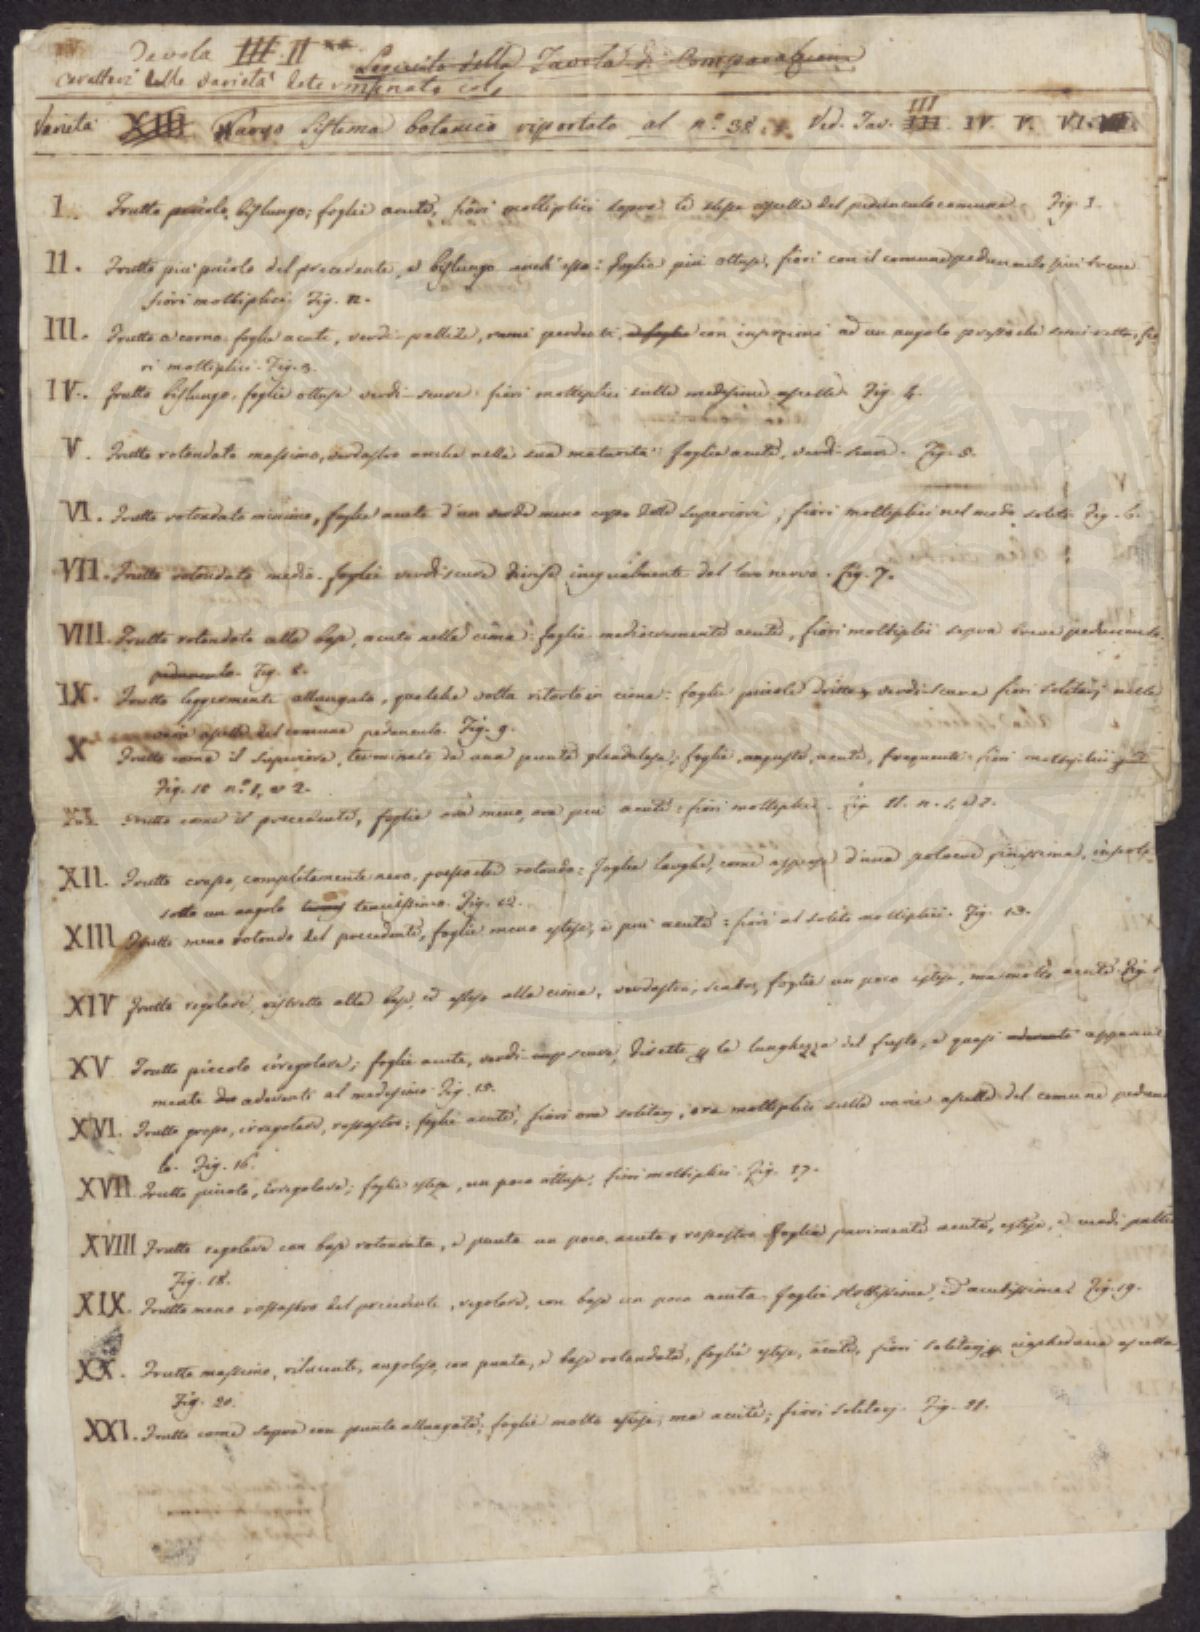 Tavola III II
Seguito della Tavola di Comparazione
Caratteri delle varietà determinate col
Varietà XIII Nuovo Sistema botanico riportato al n.º 38. Ved. Tav. III III IV. V. VI.
I. Frutto piccolo, bislungo; foglie acute, fiori moltiplici sopra le stesse ascelle del peduncolo comune. Fig. 1.
II. Frutto più piccolo del precedente, e bislungo anch'esso: foglie più ottuse, fiori con il comune peduncolo più breve
fiori moltiplici. Fig. 2.
III. Frutto a corno: foglie acute, verdi-pallide, rami penduli, e foglie con inserzioni ad un angolo pressoche semi-retto, fio
ri moltiplici. Fig. 3.
IV. Frutto bislungo, foglie ottuse verdi-scure: fiori moltiplici sulle medesime ascelle. Fig. 4.
V. Frutto rotondato massimo, verdastro anche nella sua maturità: foglie acute, verdi-scure. Fig. 5.
VI. Frutto rotondato minimo, foglie acute d'un verde meno cupo delle superiori; fiori moltiplici nel modo solito. Fig. 6.
VII. Frutto rotondato medio. foglie verdiscure divise inegualmente dal loro nervo. Fig. 7.
VIII. Frutto rotondato alla base, acuto nella cima: foglie mediocremente acute, fiori moltiplici sopra breve peduncolo.
peduncolo. Fig. 8.
IX. Frutto leggermente allungato, qualche volta ritorto in cima: foglie piccole dritte, verdiscure fiori solitarj nelle
varie ascelle del comune peduncolo. Fig. 9.
X Frutto come il superiore, terminato da una punta glandulosa; foglie anguste, acute, frequenti: fiori moltiplici
Fig. 10 n.º 1, e 2.
XI Frutto come il precedente, foglie ora meno, ora più acute: fiori moltiplici. Fig. 11. n. 1, e 2.
XII. Frutto crespo, completamente nero, pressochè rotondo: foglie larghe, come asperse d'una polvere finissima, inserte
sotto un angolo tenuissimo. Fig. 12.
XIII Frutto meno rotondo del precedente, foglie meno estese, e più acute: fiori al solito moltiplici. Fig. 13.
XIV Frutto regolare, ristretto alla base, ed esteso alla cima, verdastro, scabro, foglie un poco estese, ma molto acute. Fig. 1
XV Frutto piccolo irregolare; foglie acute, verdi-scure, dirette la lunghezza del fusto, e quasi aderenti apparente
mente aderenti al medesimo. Fig. 15.
XVI. Frutto grosso, irregolare, rossastro; foglie acute, fiori ora solitarj, ora moltiplici sulle varie ascelle del comune pedunco
lo. Fig. 16.
XVII Frutto piccolo, irregolare; foglie estese, un poco ottuse, fiori moltiplici. Fig. 17.
XVIII Frutto regolare con base rotondata, e punta un poco acuta, rossastro. Foglie parimente acute, estese, e verdi pallide
Fig. 18.
XIX. Frutto meno rossastro del precedente, regolare, con base un poco acuta. foglie strettissime, ed acutissime. Fig. 19.
XX. Frutto massimo, rilucente, angoloso, con punta, e base rotondata, foglie estese, acute, fiori solitarj ciascheduna ascella.
Fig. 20.
XXI. Frutto come sopra con punta allungata; foglie molto estese, ma acute; fiori solitarj. Fig. 21.